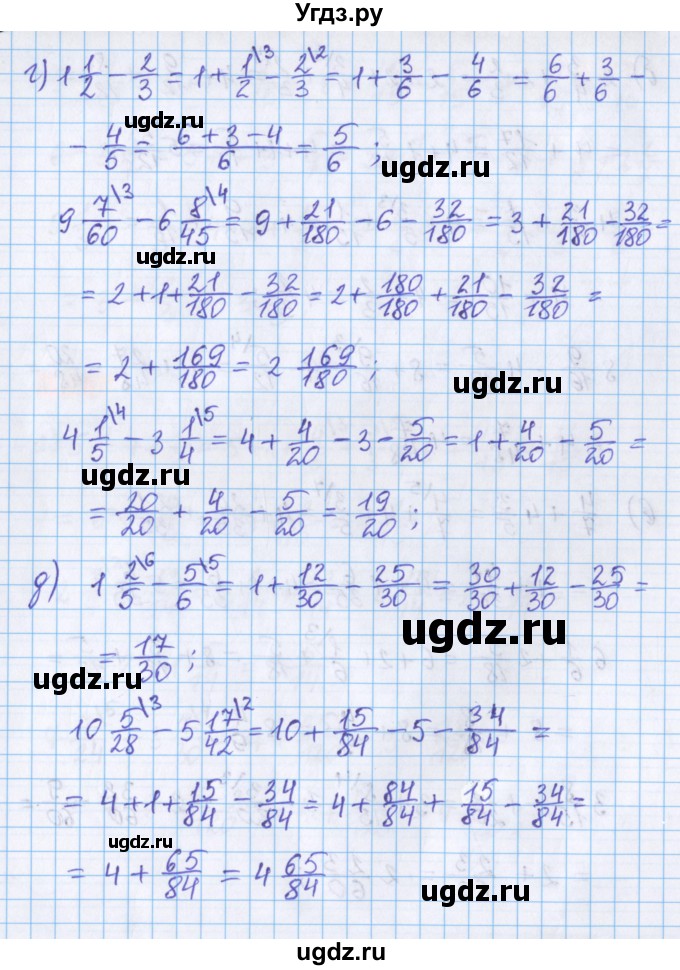 Угдз.ру
г) 1 1/2 - 2/3 = 1 + 1\3/2 - 2\2/3 = 1 + 3/6 - 4/6 = 6/6 + 3/6 -
- 4/5 = (6 + 3 - 4)/6 = 5/6 ;
ugdz.ru
ugdz.ru
9 7\3/60 - 6 8\4/45 = 9 + 21/180 - 6 - 32/180 = 3 + 21/180 - 32/180 =
ugdz.ru
= 2 + 1 + 21/180 - 32/180 = 2 + 180/180 + 21/180 - 32/180 =
= 2 + 169/180 = 2 169/180 ;
ugdz.ru
4 1\4/5 - 3 1\5/4 = 4 + 4/20 - 3 - 5/20 = 1 + 4/20 - 5/20 =
ugdz.ru
= 20/20 + 4/20 - 5/20 = 19/20 ;
д) 1 2\6/5 - 5\5/6 = 1 + 12/30 - 25/30 = 30/30 + 12/30 - 25/30 =
ugdz.ru
= 17/30 ;
ugdz.ru
10 5\3/28 - 5 17\2/42 = 10 + 15/84 - 5 - 34/84 =
= 4 + 1 + 15/84 - 34/84 = 4 + 84/84 + 15/84 - 34/84 =
ugdz.ru
= 4 + 65/84 = 4 65/84
ugdz.ru
ugdz.ru